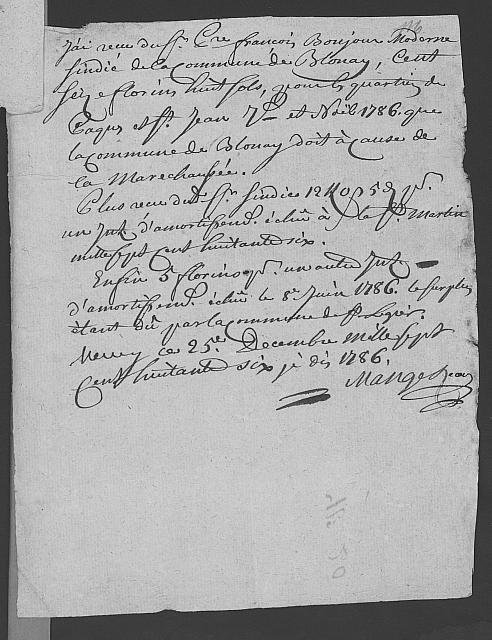 J'ai receu du Sr. Pre. francois Bonjour Moderne
sindic de la Commune de Blonay, Cent
seize florins huit sols, pour les quartiers de
Paques et St. Jean 7bre et Noël 1786. que
la commune de Blonay doit à cause de
la Marechausée.
Plus receu dudt. Sr. sindic 12 pr.
un Int. d'amortissemt. échu à la St. Martin
mille sept cent huitante six.
Enfin 5 florins pr. un autre Int.
d'amortissemt. échu le 8e. Juin 1786. le surplus
étant dû par la commune de St. Legier.
Vevey ce 25e. Decembre mille sept
Cent huitante six je dis 1786.
Mange